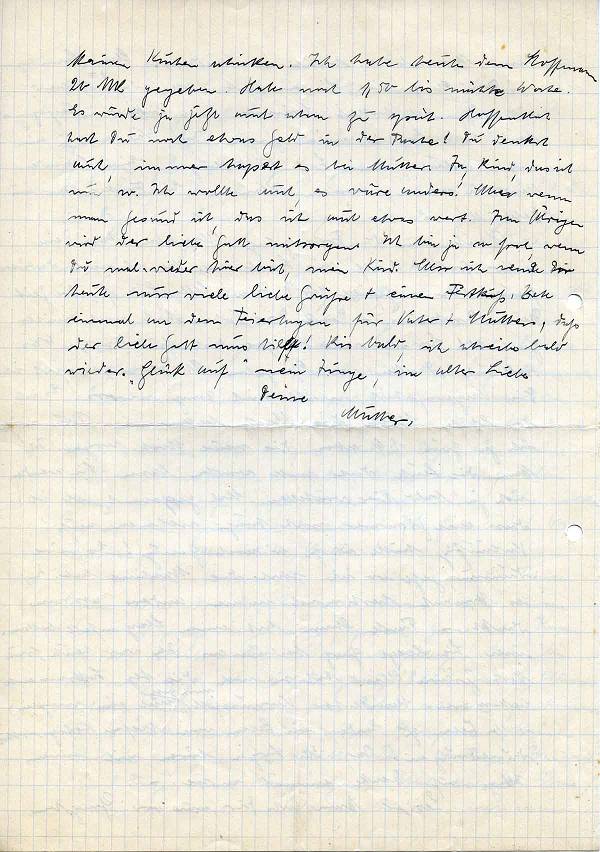 Kuchen schicken. Ich habe heute dem Hoffmann
20 Mk gegeben. Habe noch 1,50 bis nächste Woche.
Es würde ja jetzt auch schon zu spät. Hoffentlich
hast Du noch etwas Geld in der Tasche! Du denkst
auch, immer hapert es bei Mutter. Ja, Kind, das ist
nun so. Ich wollte auch, es wäre anders! Aber wenn
man gesund ist, das ist auch etwas wert. Im Übrigen
wird der liebe Gott mitsorgen. Ich bin ja so froh, wenn
Du mal wieder hier bist, mein Kind. Aber ich sende Dir
heute nur viele liebe Grüße + einen Bete
einmal an den Feiertagen für Vater + Mutter, daß
der liebe Gott uns hilft! Bis bald, ich schreibe bald
wieder. "Glück auf" mein Junge, in alter Liebe
Deine
Mutter.